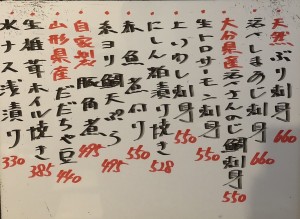 天然ぶり刺身 660
活〆しまあじ刺身 660
大分県産活〆さんのじ鯛刺身 550
生トロサーモン刺身 550
上いわし刺身 550
にしん柚漬り焼き 528
赤魚煮付け 550
糸ヨリ鯛天ぷら 495
自家製豚角煮 495
山形県産だだちゃ豆 440
生椎茸ホイル焼き 385
水ナス浅漬り 330